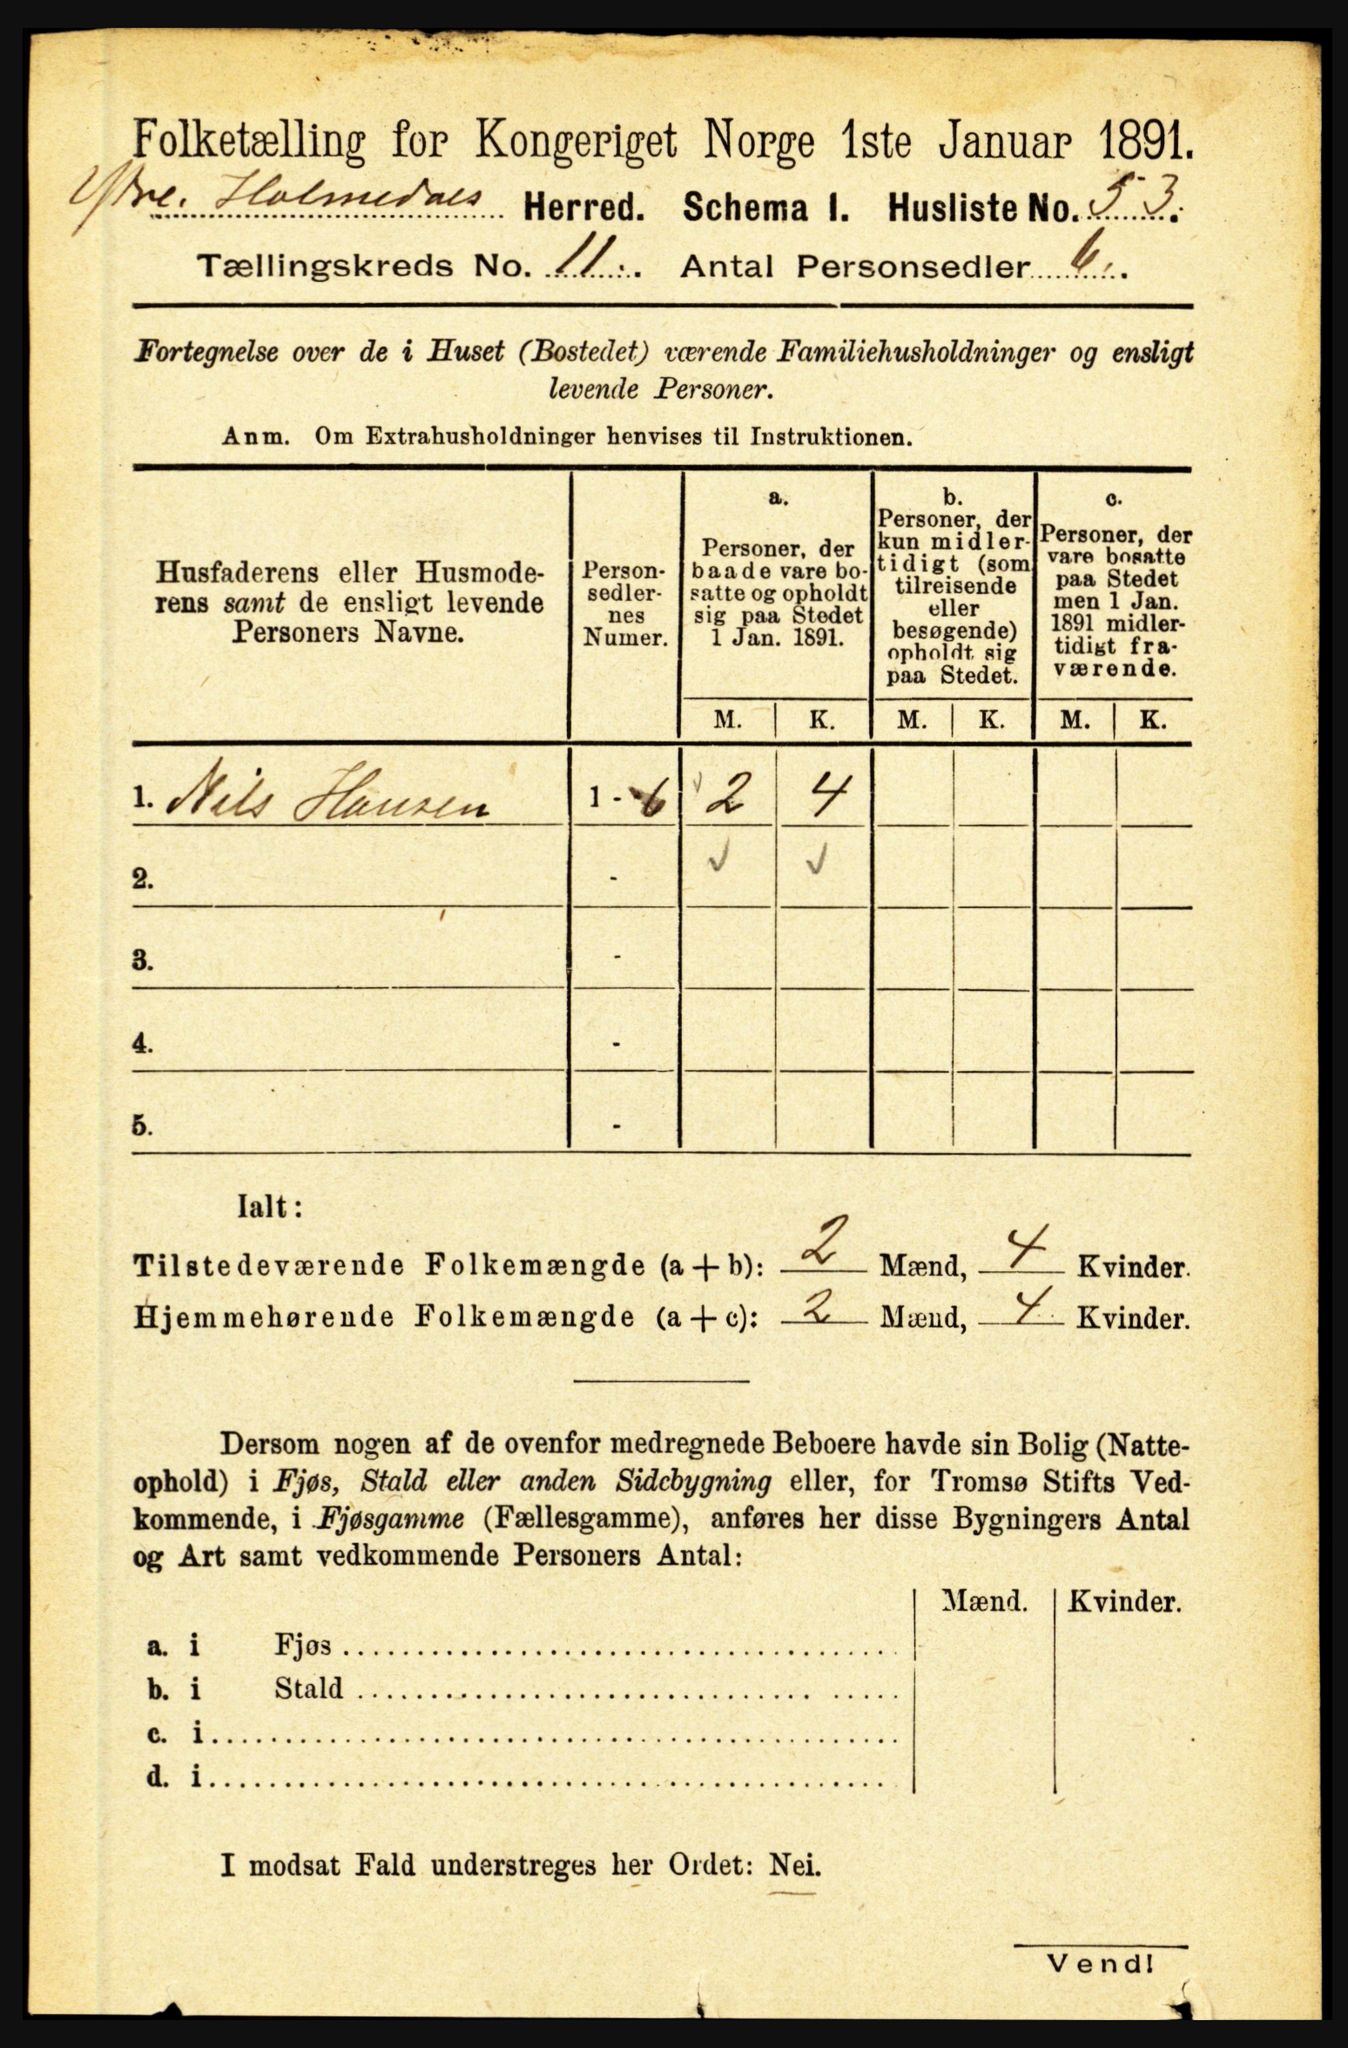 Folketælling for Kongeriget Norge 1ste Januar 1891.
Ytre. Holmedals Herred. Schema I. Husliste No. 53.
Tællingskreds No. 11. Antal Personsedler 6.
Fortegnelse over de i Huset (Bostedet) værende Familiehusholdninger og ensligt
levende Personer.
Anm. Om Extrahusholdninger henvises til Instruktionen.
Husfaderens eller Husmode-
rens samt de ensligt levende
Personers Navne.
Person-
sedler-
nes
Numer.
a.
Personer, der
baade vare bo-
satte og opholdt
sig paa Stedet
1 Jan. 1891.
b.
Personer, der
kun midler-
tidigt (som
tilreisende
eller
besøgende)
opholdt sig
paa Stedet.
c.
Personer, der
vare bosatte
paa Stedet
men 1 Jan.
1891 midler-
tidigt fra-
værende.
M. K. M. K. M. K.
1. Nils Hansen 1 - 6 2 4
2. - ✓ ✓
3. -
4. -
5. -
Ialt:
Tilstedeværende Folkemængde (a + b): 2 Mænd, 4 Kvinder.
Hjemmehørende Folkemængde (a + c): 2 Mænd, 4 Kvinder.
Dersom nogen af de ovenfor medregnede Beboere havde sin Bolig (Natte-
ophold) i Fjøs, Stald eller anden Sidebygning eller, for Tromsø Stifts Ved-
kommende, i Fjøsgamme (Fællesgamme), anføres her disse Bygningers Antal
og Art samt vedkommende Personers Antal:
Mænd. Kvinder.
a. i Fjøs
b. i Stald
c. i
d. i
I modsat Fald understreges her Ordet: Nei.
Vend!